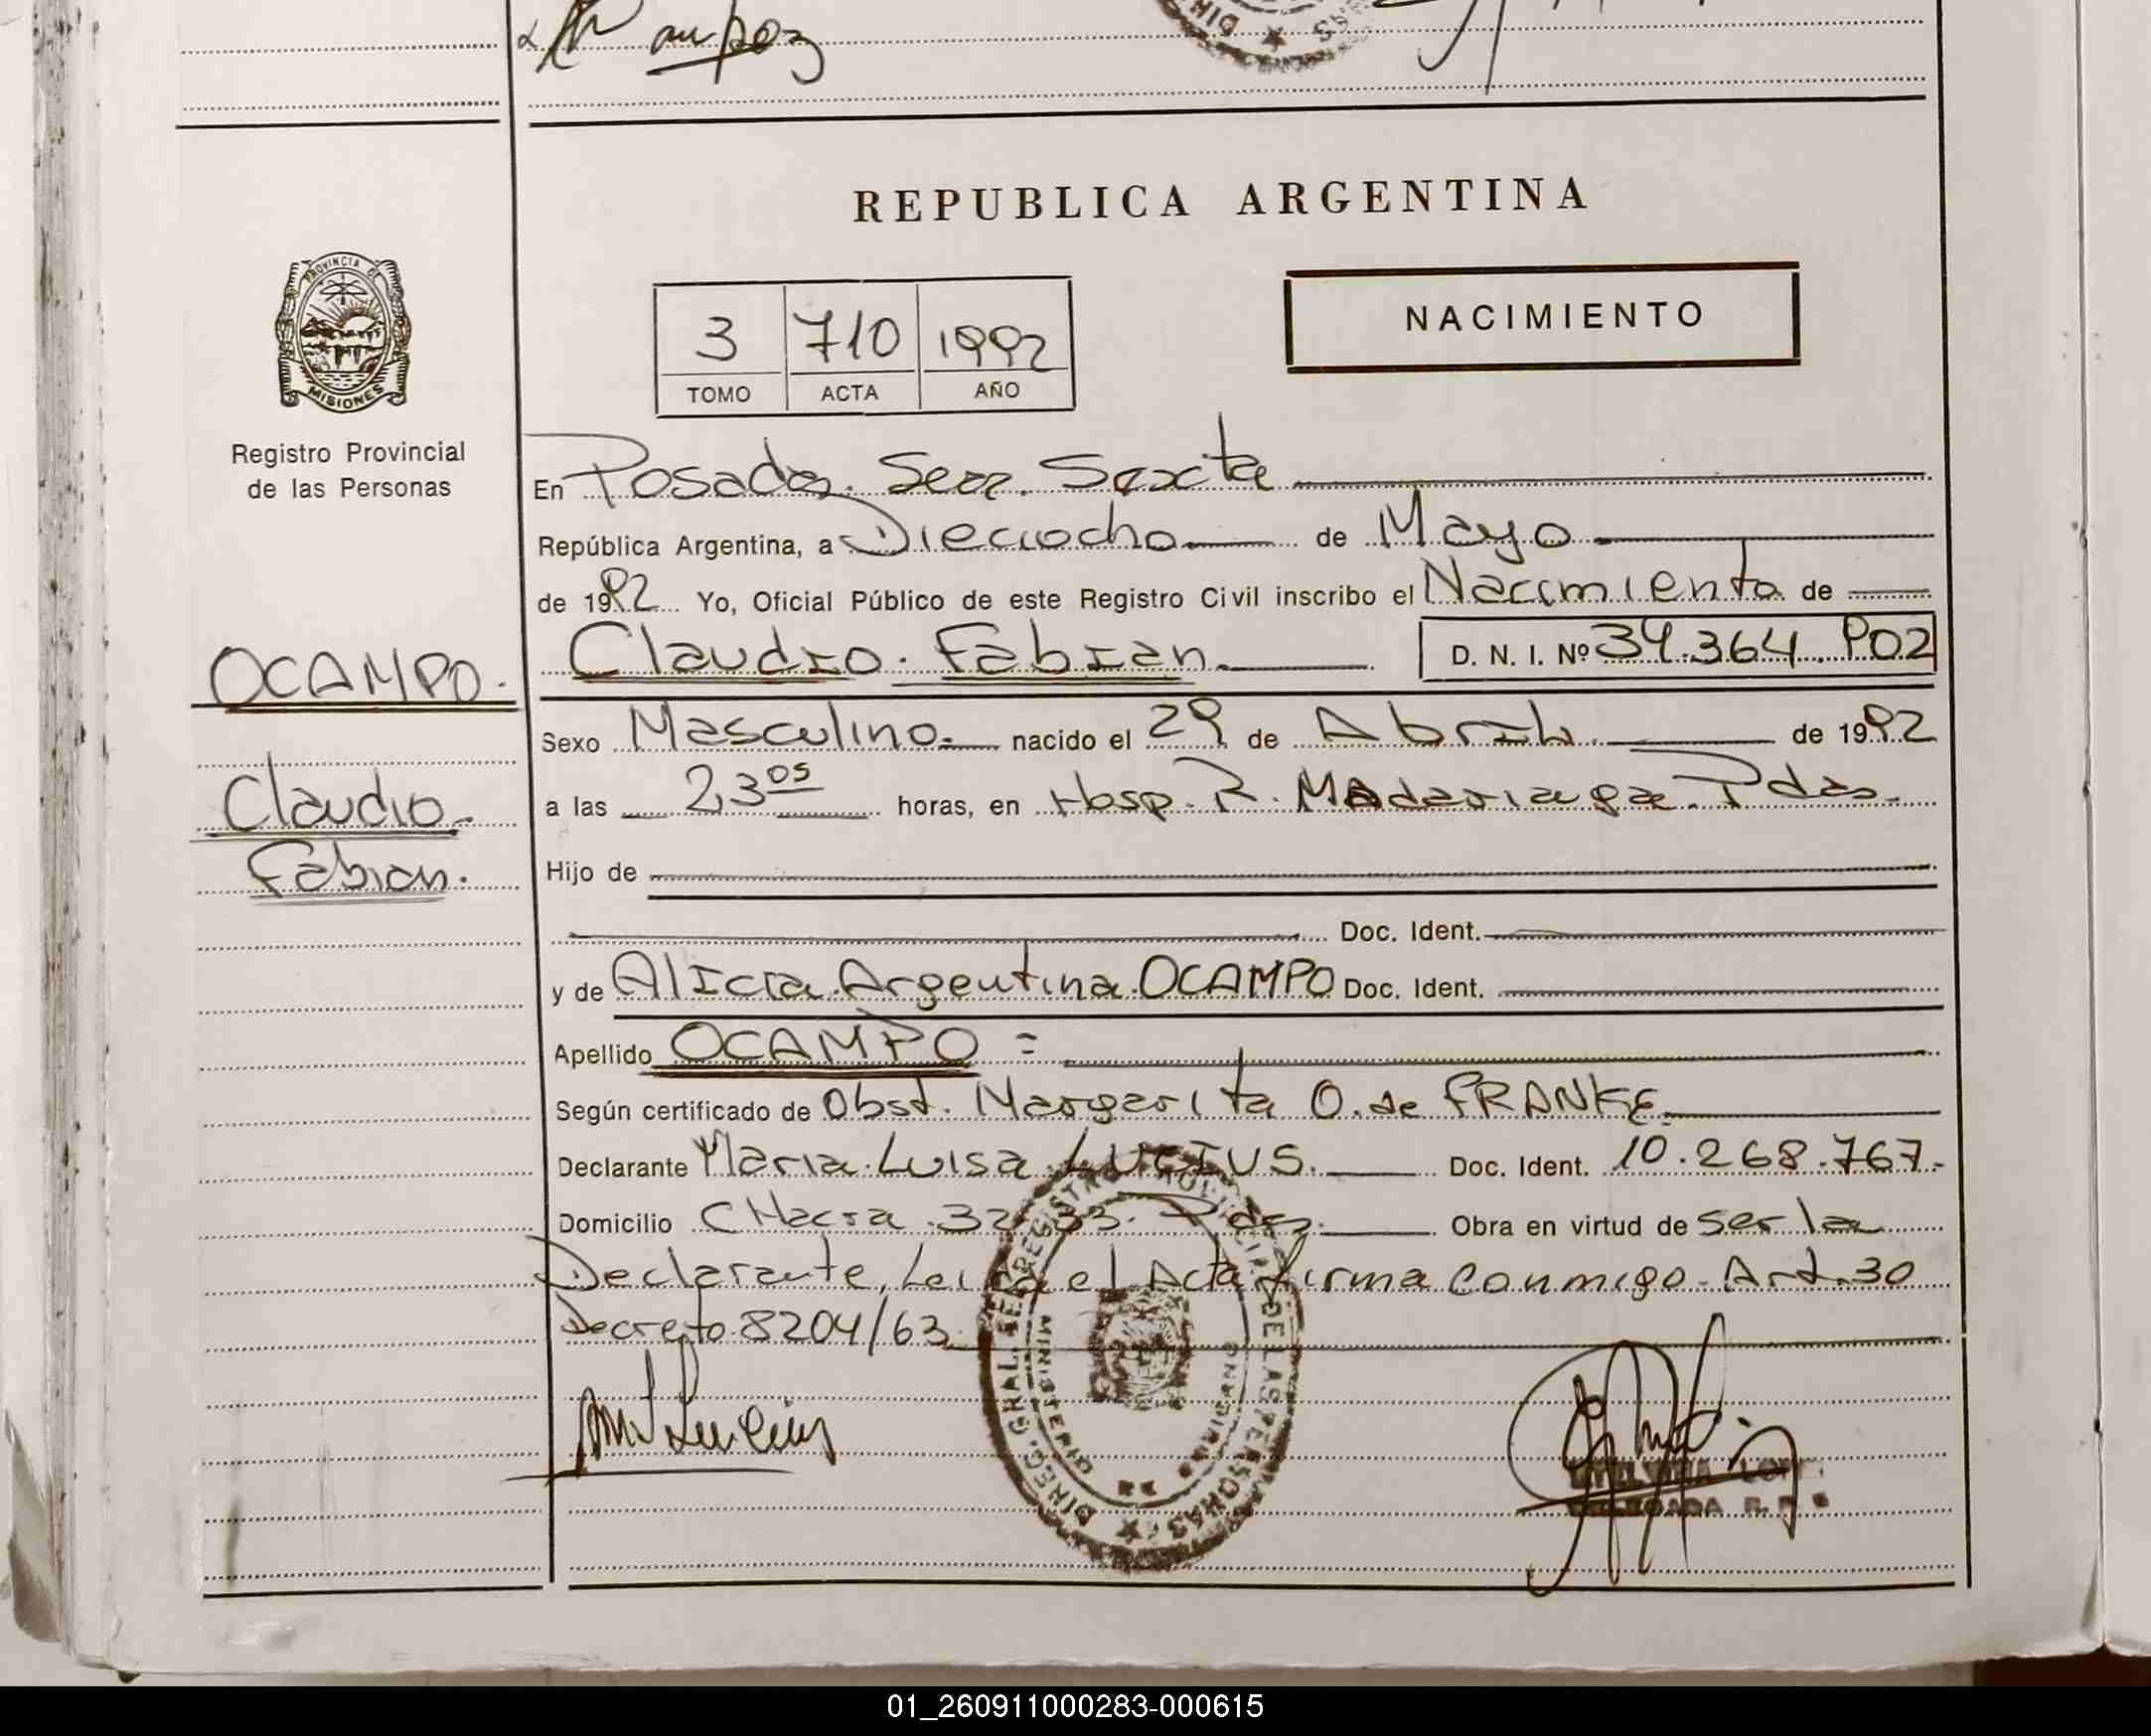 REPUBLICA ARGENTINA
PROVINCIA DE
MISIONES
Registro Provincial
de las Personas
3 710 1992
TOMO ACTA AÑO
NACIMIENTO
En Posadas. Secc. Sexta
República Argentina, a Dieciocho de Mayo
de 1992 Yo, Oficial Público de este Registro Civil inscribo el Nacimiento de
OCAMPO.
Claudio. Fabian. D. N. I. Nº 34.364.902
Sexo Masculino. nacido el 29 de Abril. de 1992
Claudio.
Fabian.
a las 23 05 horas, en Hosp. R. Madariaga. Pdas.
Hijo de
Doc. Ident.
y de Alicia Argentina OCAMPO Doc. Ident.
Apellido OCAMPO =
Según certificado de Obst. Margarita O. de FRANKE.
Declarante Maria Luisa LUCIUS. Doc. Ident. 10.268.767.
Domicilio CHacra 32-33. Pdas. Obra en virtud de ser la
Declarante, Leida el Acta firma conmigo. Art. 30
Decreto 8204/63.
DELEGADA R. P.
01_260911000283-000615